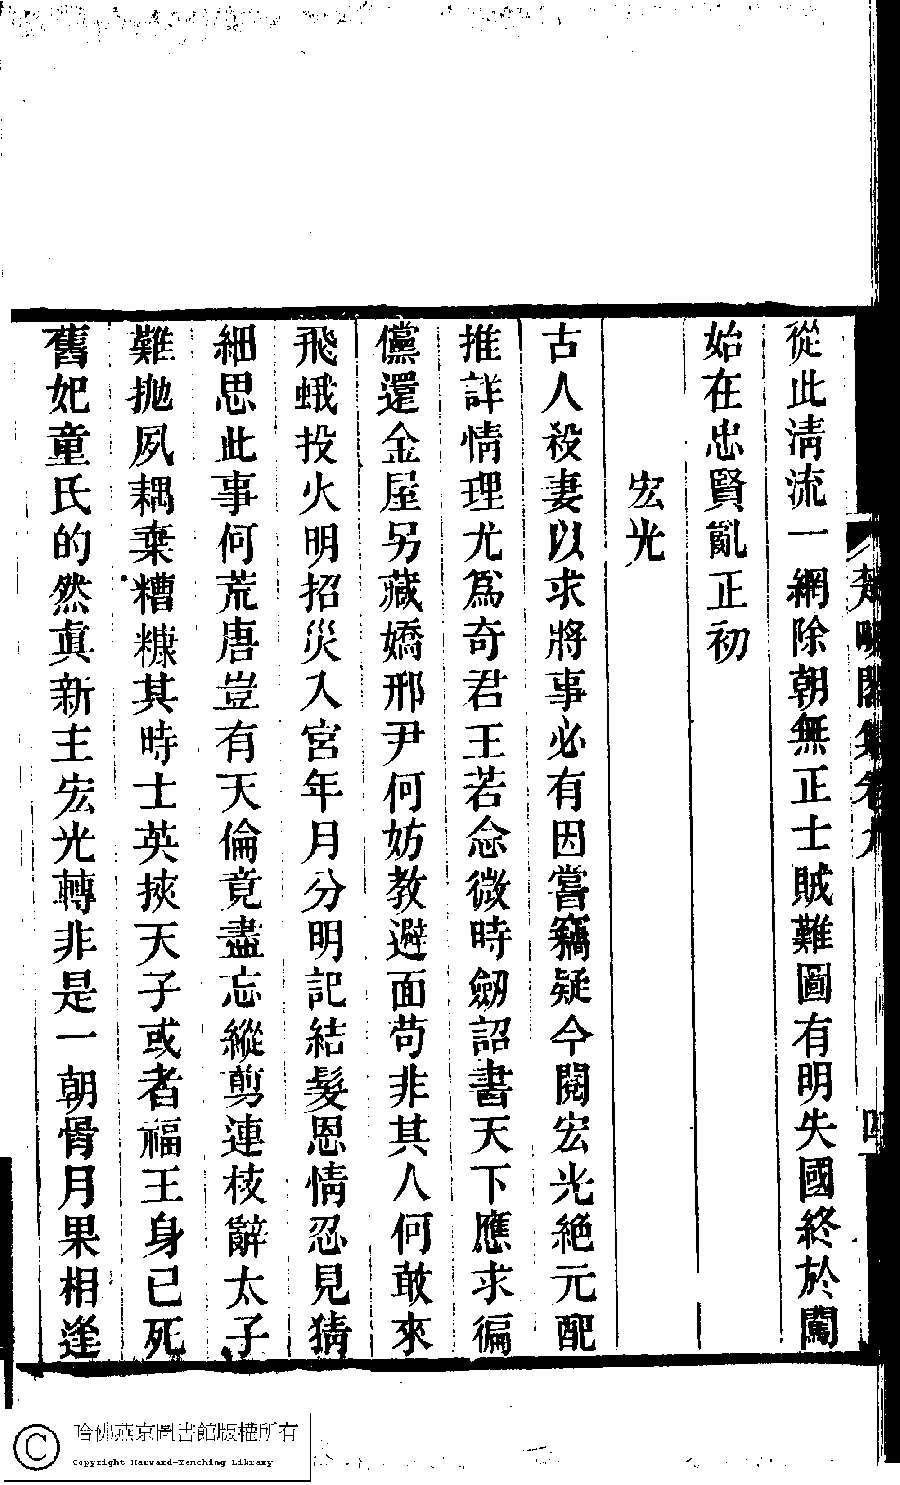 從此清流一網除朝無正士賊難圖有明失國終於闖
始在忠賢亂正初
宏光
古人殺妻以求將事必有因嘗竊疑今閱宏光絶元配
推詳情理尤爲奇君王若念微時劒詔書天下應求徧
儻還金屋另藏嬌邢尹何妨教避面苟非其人何敢來
飛蛾投火明招災入宮年月分明記結髮恩情忍見猜
細思此事何荒唐豈有天倫竟盡忘縱剪連枝辭太子
難抛夙耦棄糟糠其時士英挾天子或者福王身已死
舊妃童氏的然眞新主宏光轉非是一朝骨月果相逢
哈佛燕京圖書館版權所有
Copyright Harvard-Yenching Library